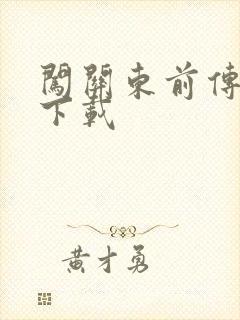 闖關東前傳
下載
黃才勇